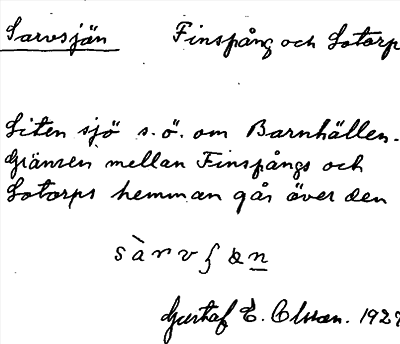 Sarvsjön Finspång och Lotorp
Liten sjö s.ö. om Barnhällen.
Gränsen mellan Finspångs och
Lotorps hemman går över den
Gustaf E. Olsson. 192